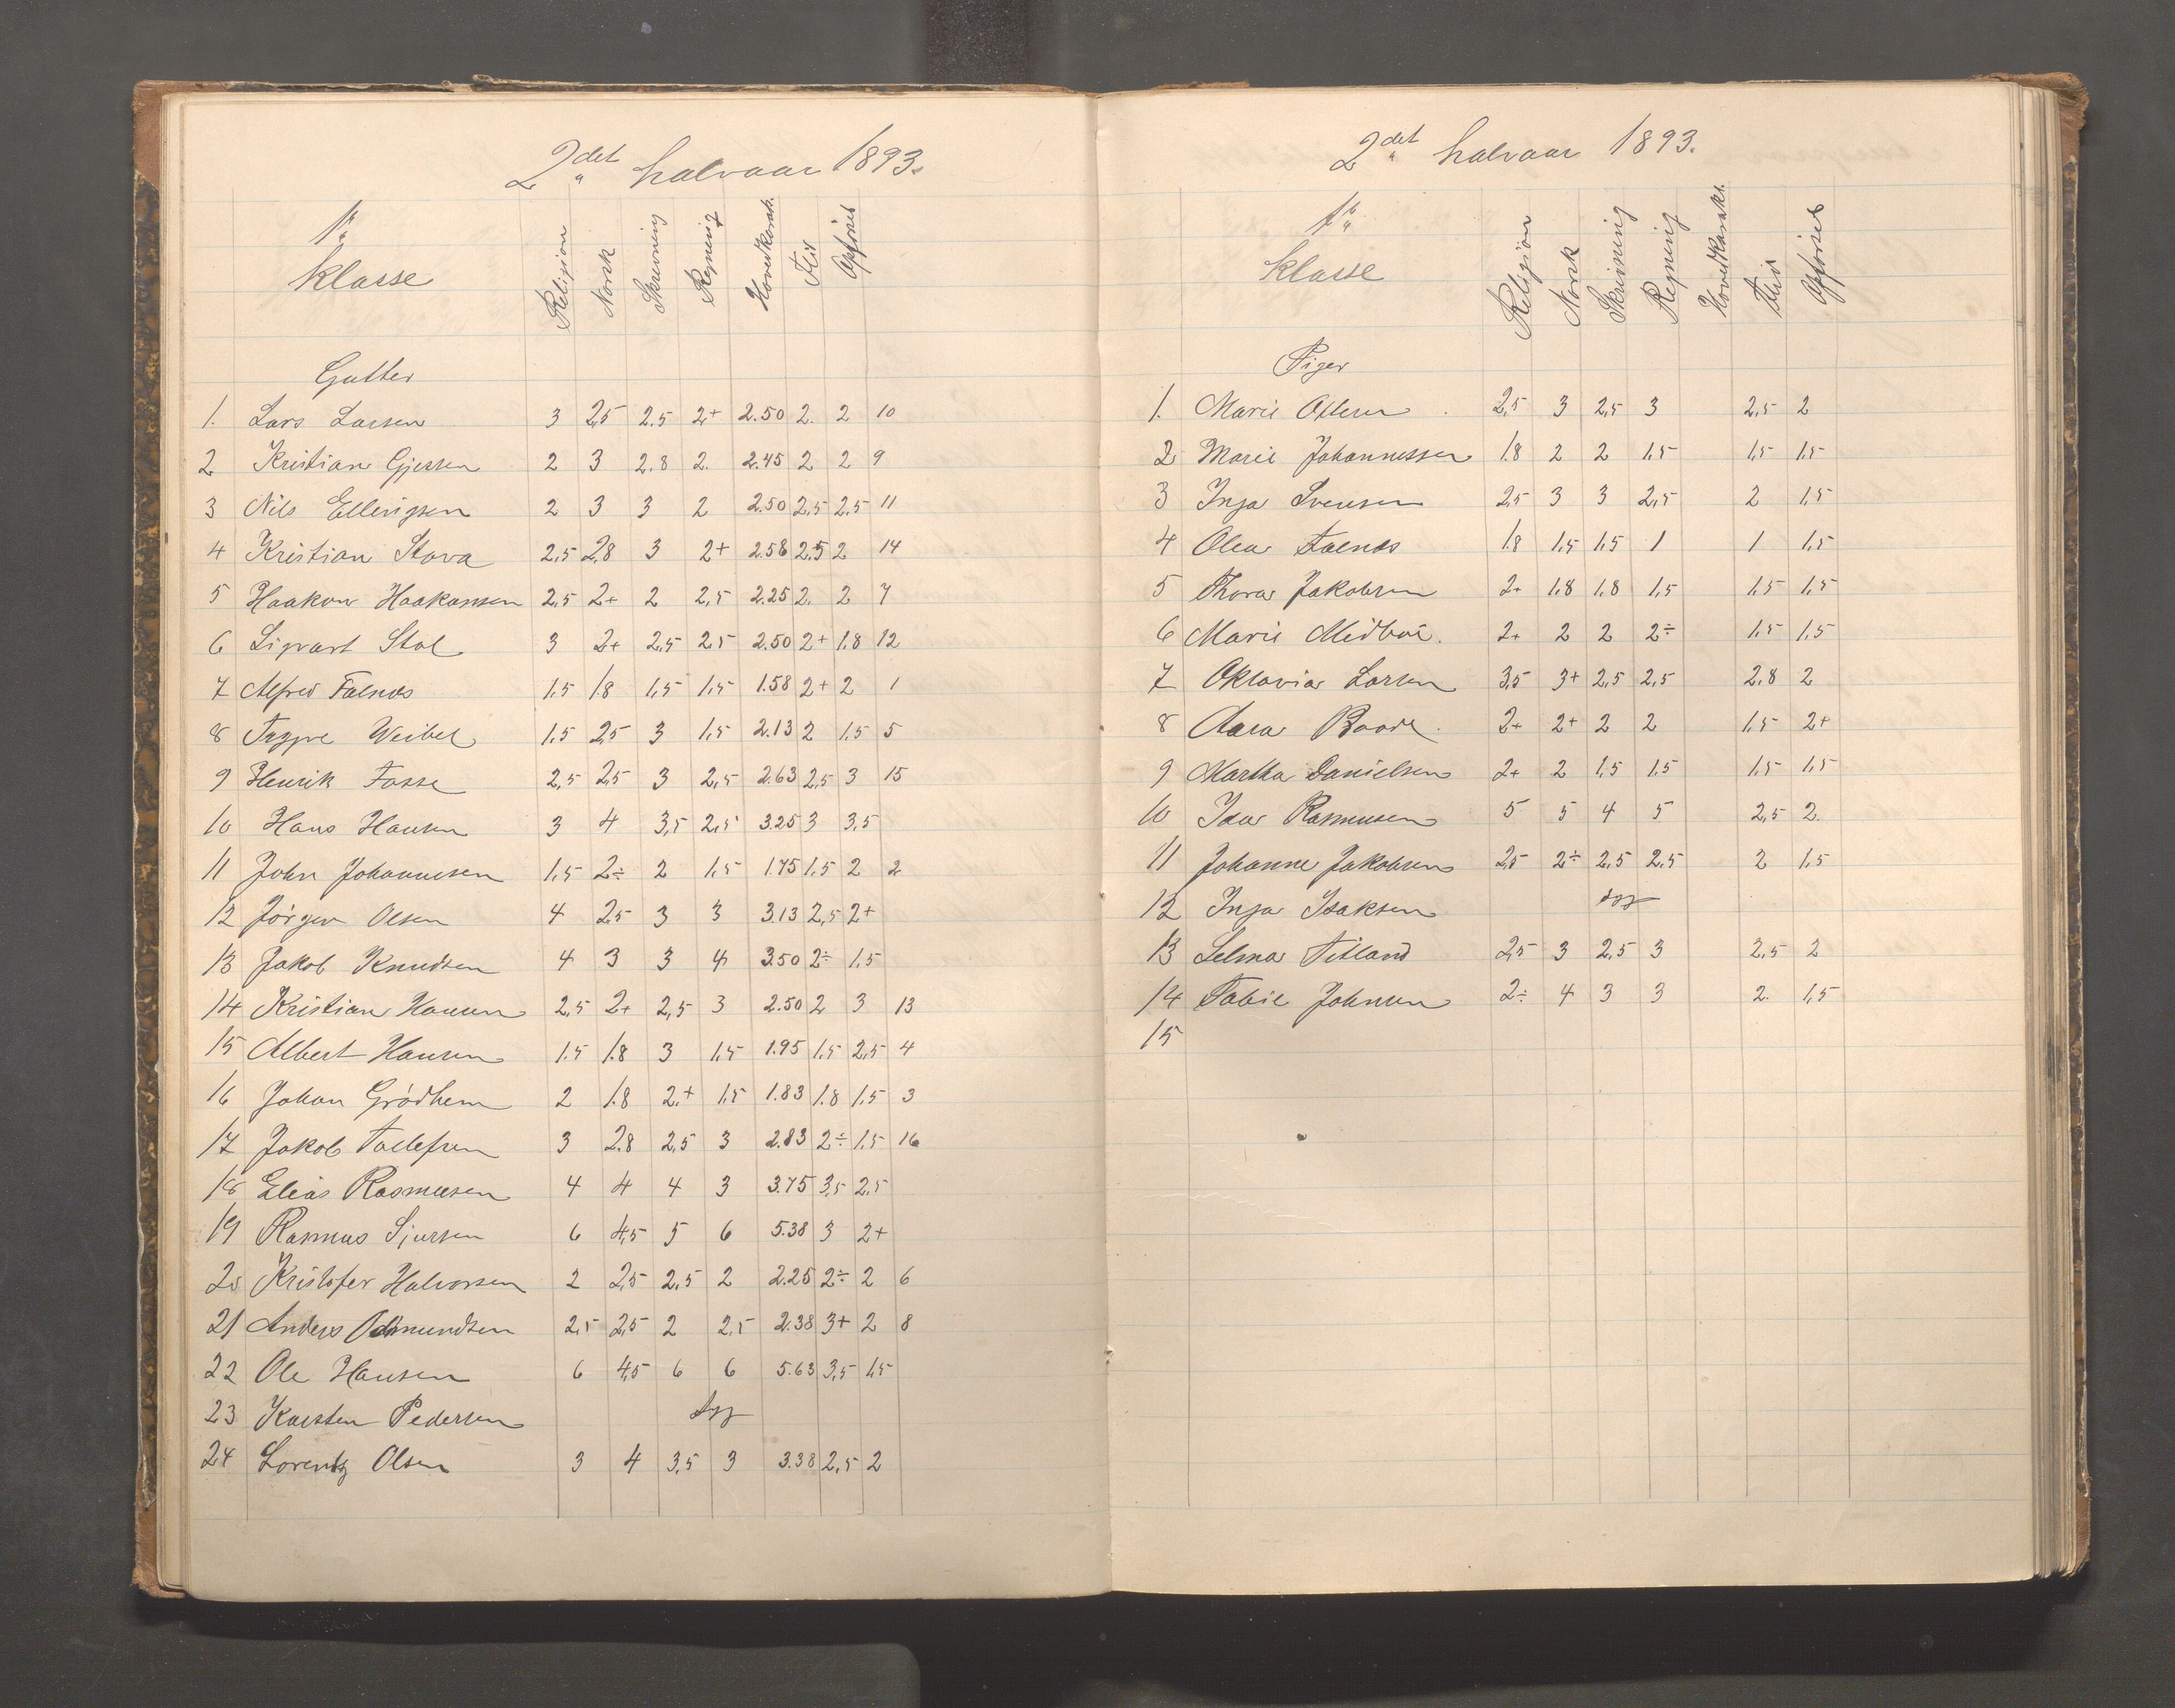 2det halvaar 1893.
1ste klasse
Religion Norsk Skrivning Regning Hovedkarak. Flid Opførsel
Gutter
1. Lars Larsen 3 2,5 2.5 2+ 2.50 2. 2 10
2 Kristian Gjersen 2 3 2.8 2. 2.45 2 2 9
3 Nils Ellingsen 2 3 3 2 2.50 2,5 2.5 11
4 Kristian Stava 2,5 2,8 3 2+ 2.58 2.5 2 14
5 Haakon Haakonsen 2,5 2+ 2 2,5 2.25 2. 2 7
6 Sigvart Stol 3 2+ 2,5 2,5 2.50 2+ 1.8 12
7 Alfred Falnes 1,5 1.8 1,5 1,5 1.58 2+ 2 1
8 Trygve Weibel 1.5 2,5 3 1,5 2.13 2 1.5 5
9 Henrik Fosse 2,5 2,5 3 2,5 2.63 2,5 3 15
10 Hans Hansen 3 4 3,5 2,5 3.25 3 3,5
11 John Johannesen 1,5 2÷ 2 1,5 1.75 1,5 2 2
12 Jørgen Olsen 4 2,5 3 3 3.13 2,5 2+
13 Jakob Knudsen 4 3 3 4 3.50 2÷ 1,5
14 Kristian Hansen 2,5 2+ 2,5 3 2.50 2 3 13
15 Albert Hansen 1.5 1.8 3 1,5 1.95 1,5 2,5 4
16 Johan Grødhem 2 1.8 2.+ 1,5 1.83 1.8 1,5 3
17 Jakob Tollefsen 3 2.8 2,5 3 2.83 2÷ 1.5 16
18 Elias Rasmussen 4 4 4 3 3.75 3,5 2,5
19 Rasmus Sjursen 6 4,5 5 6 5.38 3 2+
20 Kristofer Halvorsen 2 2,5 2,5 2 2.25 2÷ 2 6
21 Anders Odmundsen 2,5 2,5 2 2,5 2.38 3+ 2 8
22 Ole Hansen 6 4,5 6 6 5.63 3,5 1,5
23 Karsten Pedersen syg
24 Lorentz Olsen 3 4 3,5 3 3.38 2,5 2
2det halvaar 1893.
1ste klasse
Religion Norsk Skrivning Regning Hovedkarakt. Flid Opførsel
Piger
1. Marie Ottesen 2,5 3 2,5 3 2,5 2
2 Marie Johannessen 1.8 2 2 1.5 1,5 1.5
3 Inga Svensen 2,5 3 3 2,5 2 1,5
4 Olea Falnes 1.8 1,5 1,5 1 1 1,5
5 Thora Jakobsen 2+ 1.8 1.8 1,5 1.5 1,5
6 Marie Medbøe. 2+ 2 2 2÷ 1,5 1,5
7 Oktavia Larsen 3,5 3+ 2,5 2,5 2.8 2
8 Aara 2+ 2+ 2 2 1,5 2+
9 Martha Danielsen 2+ 2 1,5 1.5 1,5 1,5
10 Ida Rasmusen 5 5 4 5 2,5 2.
11 Johanne Jakobsen 2,5 2÷ 2,5 2,5 2 1,5
12 Inga Isaksen syg
13 Selma Titland 2,5 3 2,5 3 2,5 2
14 Tobie Johnsen 2÷ 4 3 3 2. 1,5
15